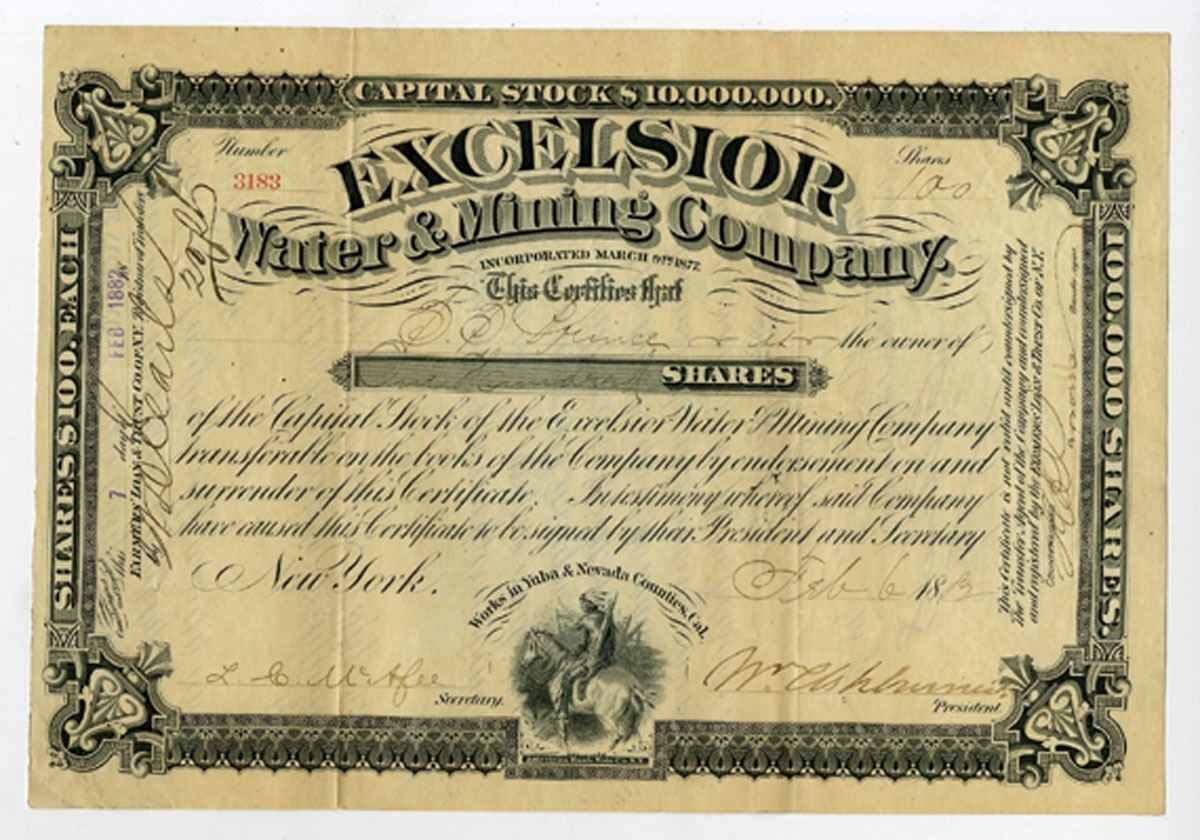 CAPITAL STOCK $10.000.000.
Number
3183
Shares
100
EXCELSIOR
Water & Mining Company.
INCORPORATED MARCH 9TH 1877.
This Certifies that
the owner of
One Hundred SHARES
of the Capital Stock of the Excelsior Water & Mining Company
transferable on the books of the Company by endorsement on and
surrender of this Certificate. In testimony whereof said Company
have caused this Certificate to be signed by their President and Secretary
New York.
Feb 6 1883
Works in Yuba & Nevada Counties, Cal.
L. C. McAfee
Secretary.
Wm Ashburner
President.
AMERICAN BANK NOTE CO. N.Y.
SHARES $100. EACH
100,000 SHARES.
this 7 day of FEB 1883
FARMERS' LOAN & TRUST CO. OF N.Y.
by
This Certificate is not valid until countersigned by
the Transfer Agent of the Company and countersigned
and registered by the FARMERS' LOAN & TRUST CO. OF N.Y.